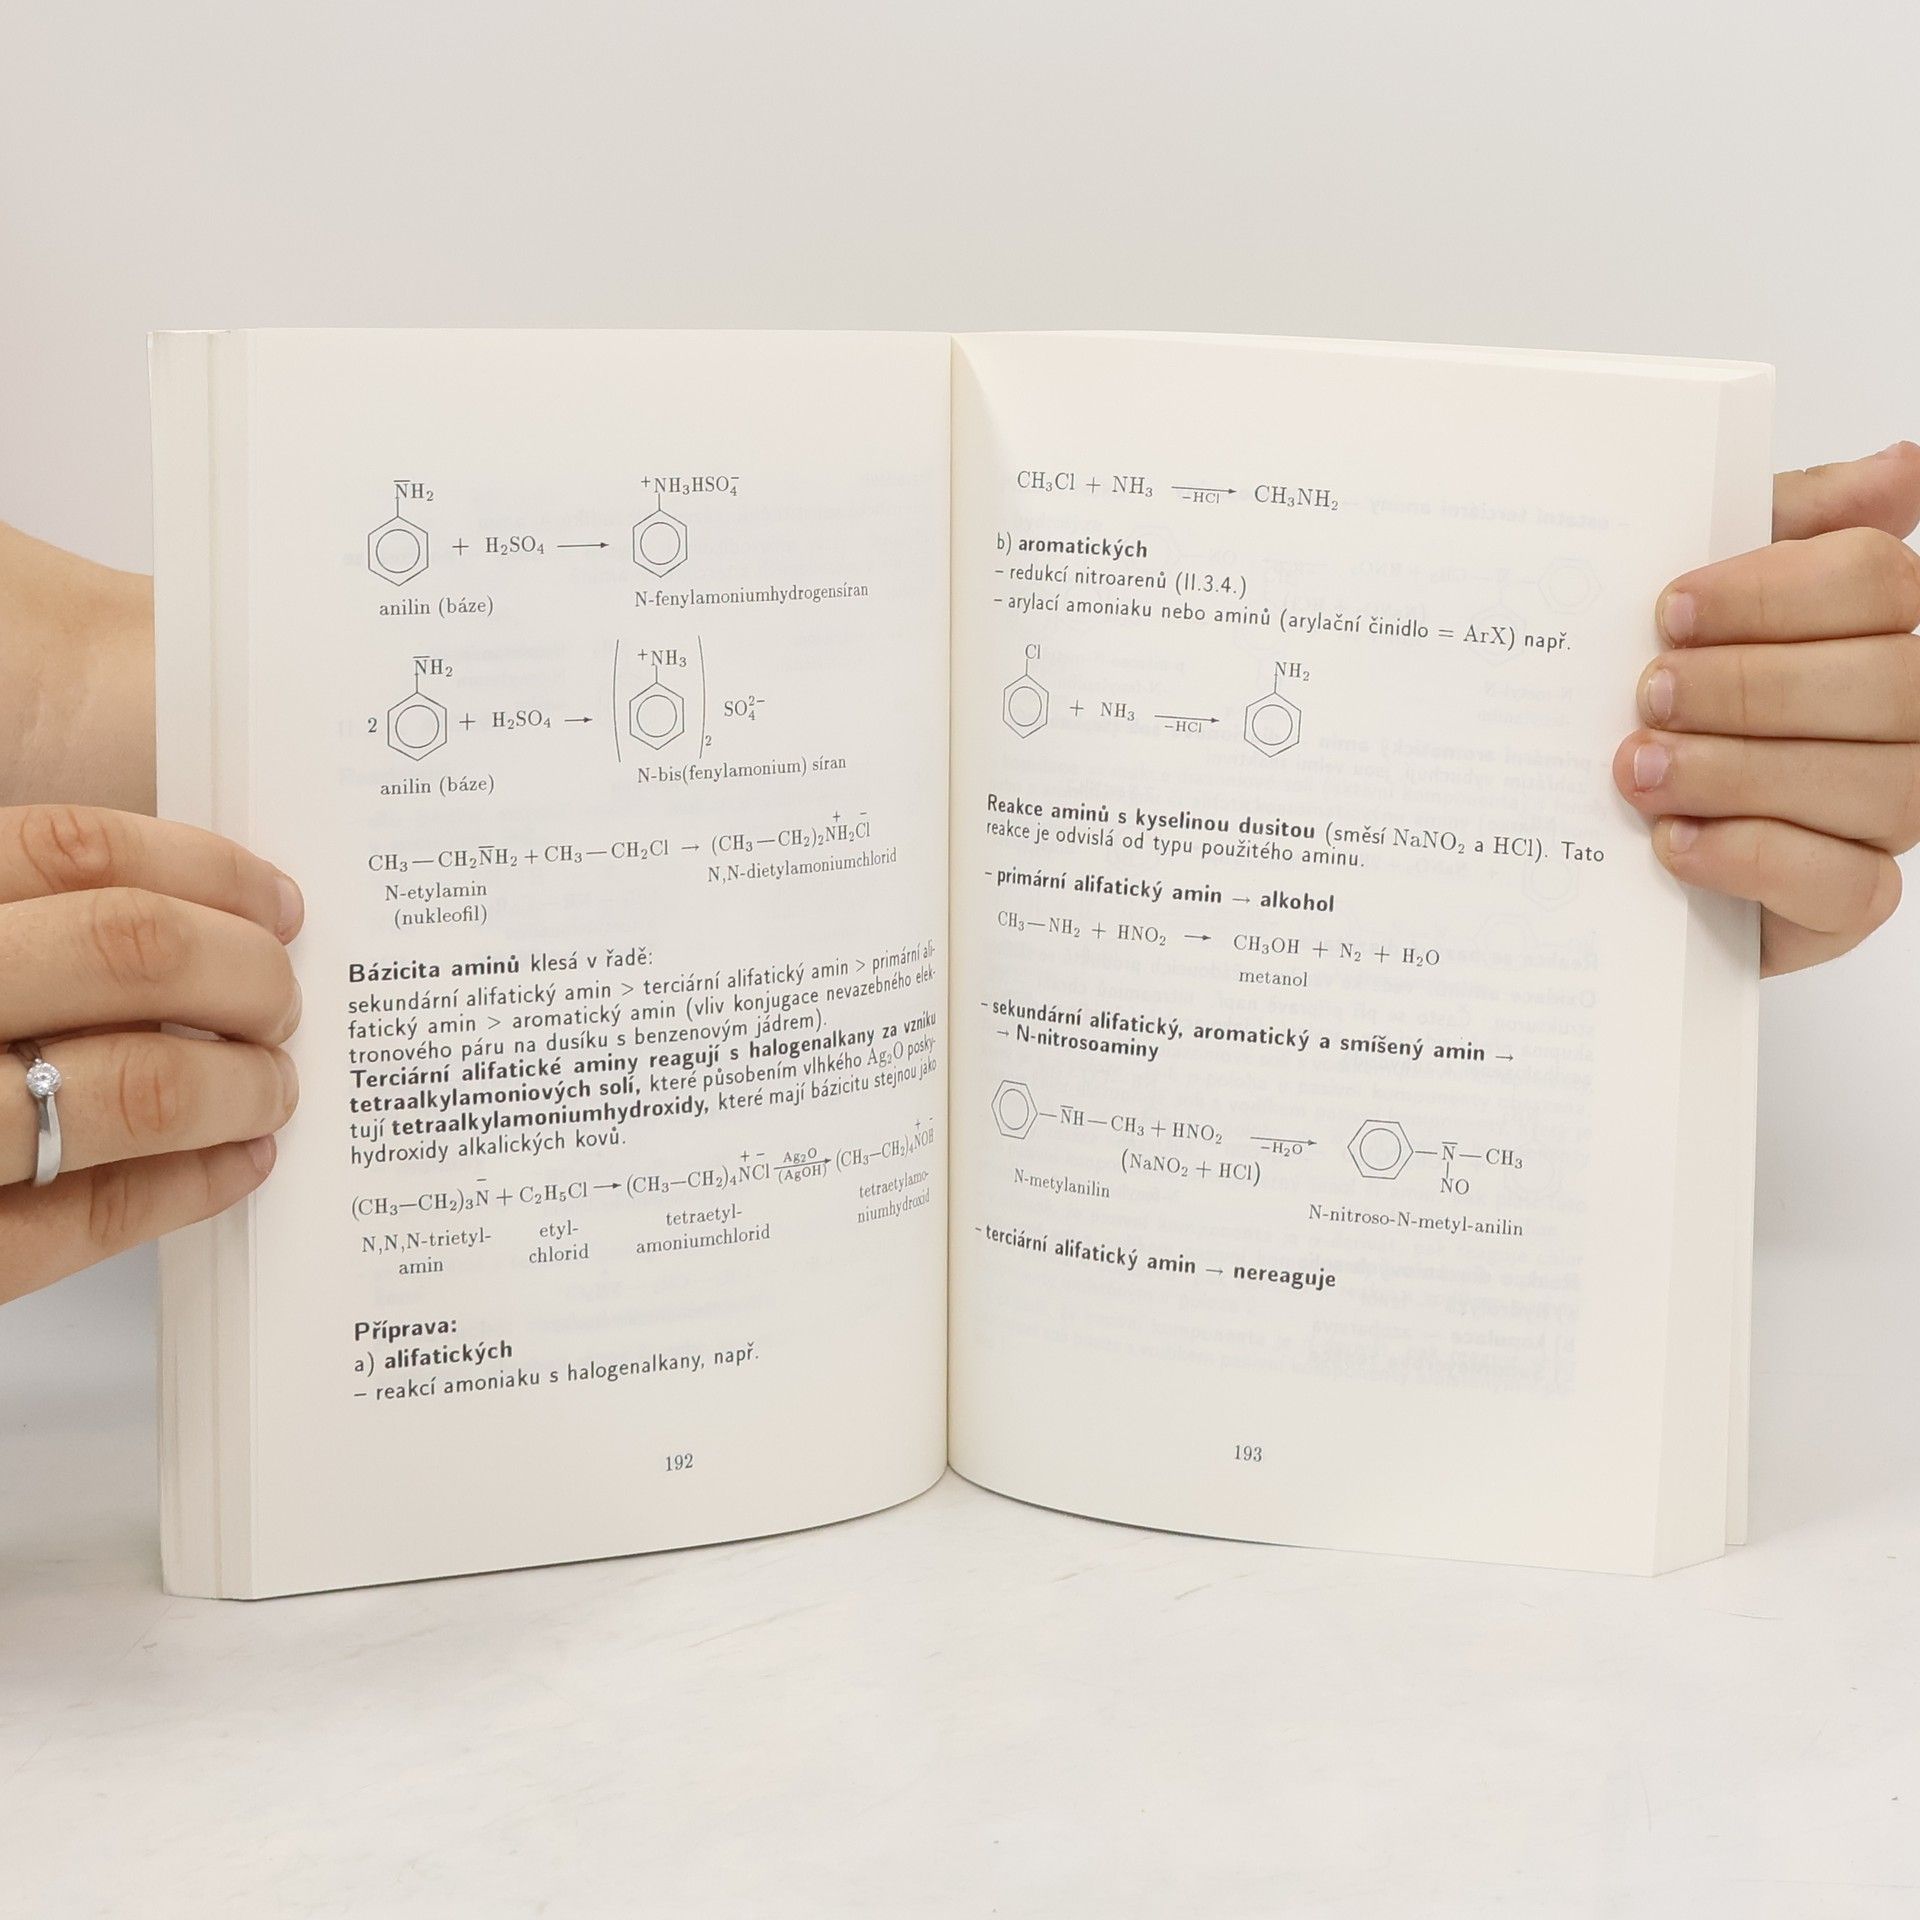 N̅H₂
⁺NH₃HSO₄⁻
+ H₂SO₄ ⟶
anilin (báze)
N-fenylamoniumhydrogensíran
N̅H₂
⁺NH₃
2 + H₂SO₄ → ( )₂ SO₄²⁻
anilin (báze)
N-bis(fenylamonium) síran
CH₃—CH₂N̅H₂ + CH₃—CH₂Cl → (CH₃—CH₂)₂N⁺H₂Cl⁻
N-etylamin
N,N-dietylamoniumchlorid
(nukleofil)
Bázicita aminů klesá v řadě:
sekundární alifatický amin > terciární alifatický amin > primární ali-
fatický amin > aromatický amin (vliv konjugace nevazebného elek-
tronového páru na dusíku s benzenovým jádrem).
Terciární alifatické aminy reagují s halogenalkany za vzniku
tetraalkylamoniových solí, které působením vlhkého Ag₂O posky-
tují tetraalkylamoniumhydroxidy, které mají bázicitu stejnou jako
hydroxidy alkalických kovů.
(CH₃—CH₂)₃N̅ + C₂H₅Cl ⟶ (CH₃—CH₂)₄N⁺Cl⁻ Ag₂O (AgOH) → (CH₃—CH₂)₄N⁺OH⁻
N,N,N-trietyl- etyl- tetraetyl- tetraetylamo-
amin chlorid amoniumchlorid niumhydroxid
Příprava:
a) alifatických
– reakcí amoniaku s halogenalkany, např.
192
CH₃Cl + NH₃ −HCl → CH₃NH₂
b) aromatických
– redukcí nitroarenů (II.3.4.)
– arylací amoniaku nebo aminů (arylační činidlo = ArX) např.
Cl
NH₂
+ NH₃ −HCl →
Reakce aminů s kyselinou dusitou (směsí NaNO₂ a HCl). Tato
reakce je odvislá od typu použitého aminu.
– primární alifatický amin → alkohol
CH₃—NH₂ + HNO₂ → CH₃OH + N₂ + H₂O
metanol
– sekundární alifatický, aromatický a smíšený amin →
→ N-nitrosoaminy
—N̅H—CH₃ + HNO₂ −H₂O → —N̅—CH₃
(NaNO₂ + HCl)
NO
N-metylanilin
N-nitroso-N-metyl-anilin
– terciární alifatický amin → nereaguje
193